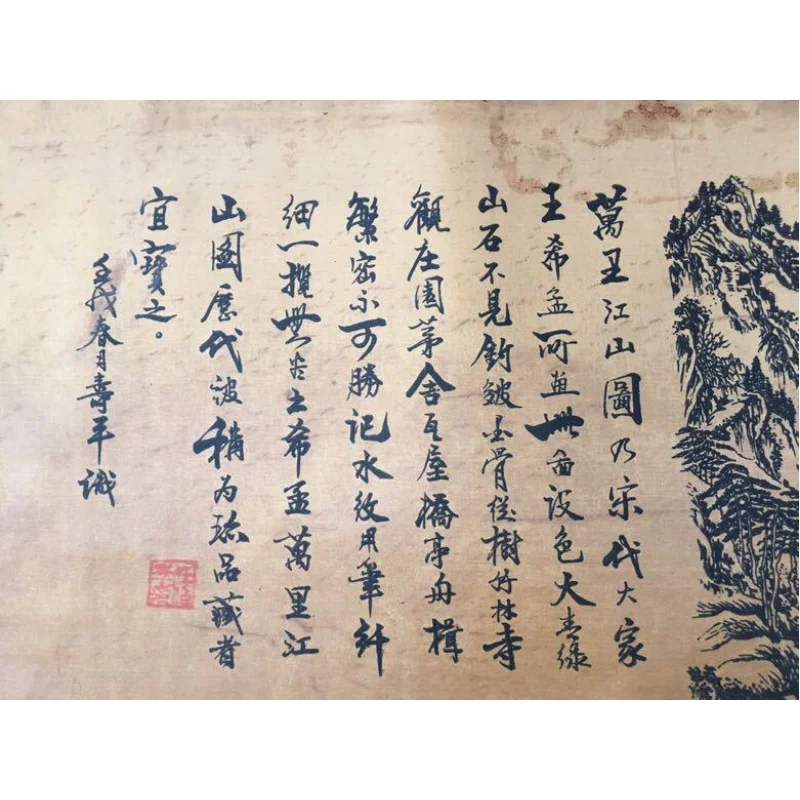 萬里江山圖乃宋代大家
王希孟所畫此畵設色大青绿
山石不見鈎皴墨骨但樹竹林寺
觀庄園茅舍瓦屋橋亭舟楫
繁密不可勝記水紋用筆纤
细一攬無
王希孟萬里江
山圖歷代被稱为珎品藏者
宜寶之。
壬戌春月壽平識